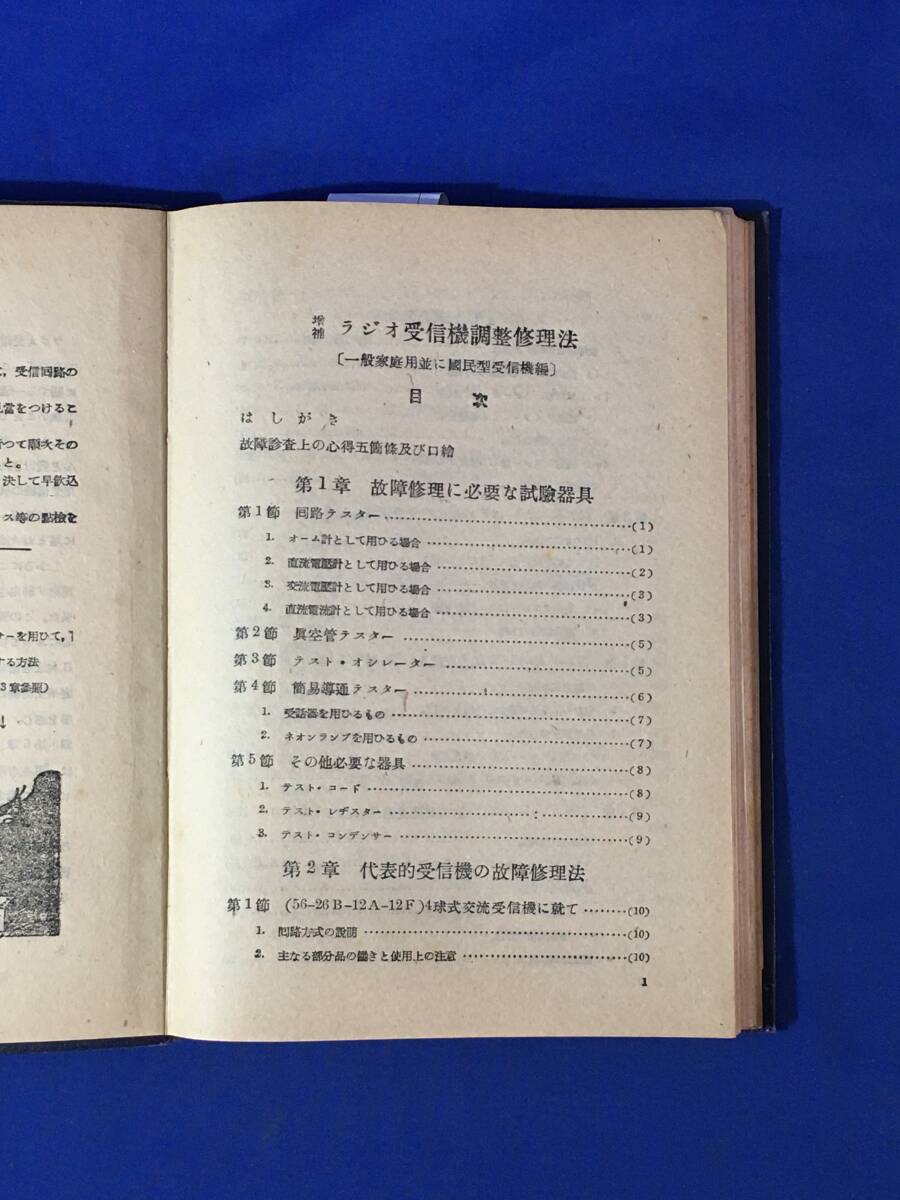 て, 受信回路の
見當をつけるこ
つて順次その
と。
決して早飮込
ス等の點檢を
サーを用ひて,
する方法
3章參照)
増補 ラジオ受信機調整修理法
〔一般家庭用並に國民型受信機編〕
目 次
はしがき
故障診査上の心得五箇條及び口繪
第1章 故障修理に必要な試驗器具
第1節 回路テスター……(1)
1. オーム計として用ひる場合……(1)
2. 直流電壓計として用ひる場合……(2)
3. 交流電壓計として用ひる場合……(3)
4. 直流電流計として用ひる場合……(3)
第2節 眞空管テスター……(5)
第3節 テスト・オシレーター……(5)
第4節 簡易導通テスター……(6)
1. 受話器を用ひるもの……(7)
2. ネオンランプを用ひるもの……(7)
第5節 その他必要な器具……(8)
1. テスト・コード……(8)
2. テスト・レヂスター……(9)
3. テスト・コンデンサー……(9)
第2章 代表的受信機の故障修理法
第1節 (56-26B-12A-12F)4球式交流受信機に就て……(10)
1. 回路方式の說明……(10)
2. 主なる部分品の働きと使用上の注意……(10)
1